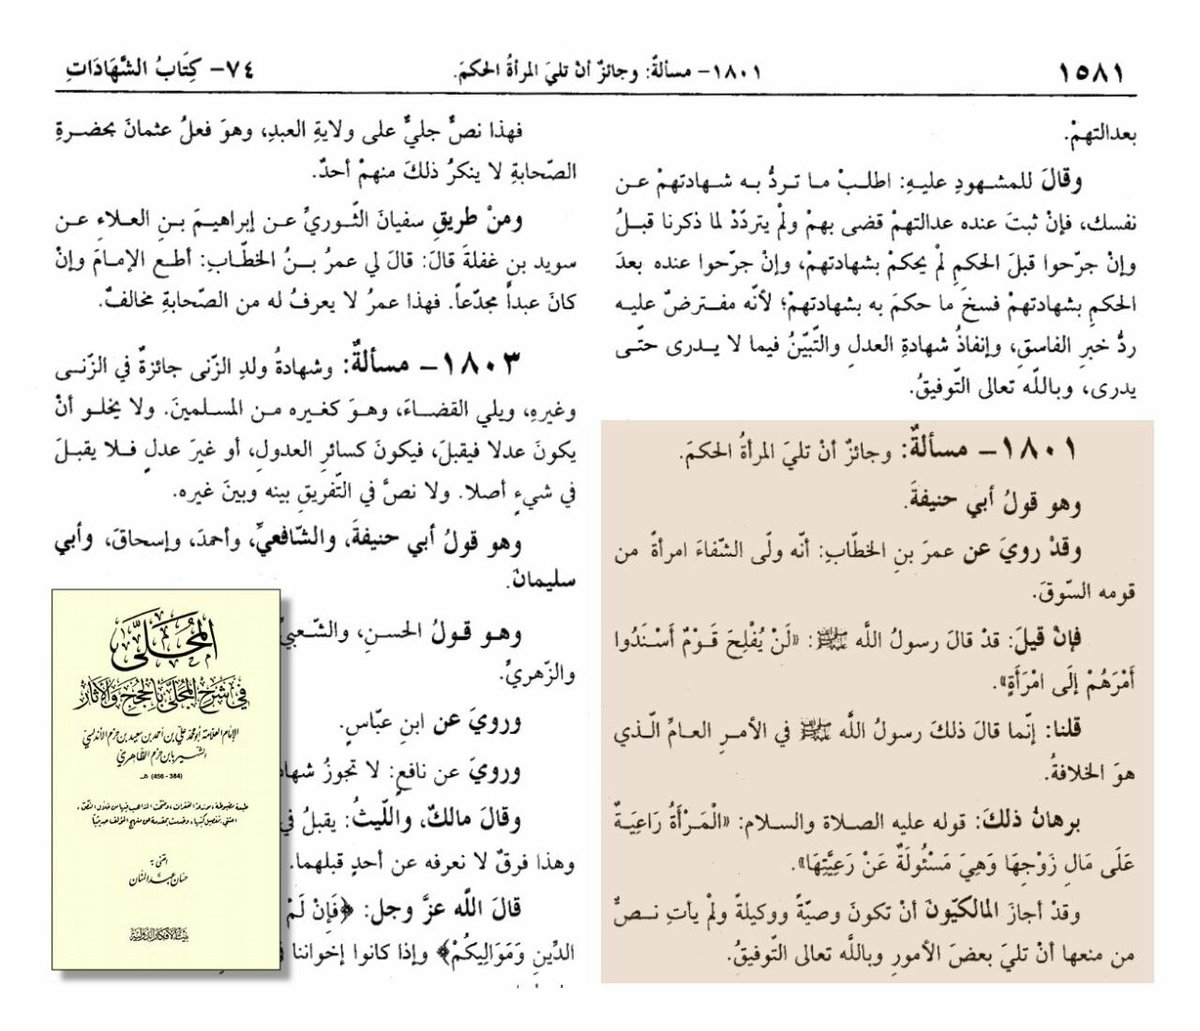 ١٥٨١
١٨٠١- مسألةٌ: وجائزٌ أنْ تليَ المرأةُ الحكمَ.
٧٤- كِتَابُ الشَّهَادَاتِ
بعدالتهمْ.
وقالَ للمشهودِ عليهِ: اطلبْ ما تردُّ به شهادتهمْ عن
نفسك، فإنْ ثبتَ عنده عدالتهمْ قضى بهمْ ولمْ يتردّدْ لما ذكرنا قبلُ
وإنْ جرّحوا قبلَ الحكمِ لمْ يحكمْ بشهادتهمْ، وإنْ جرّحوا عنده بعدَ
الحكمِ بشهادتهمْ فسخَ ما حكمَ به بشهادتهمْ؛ لأنّه مفترضٌ عليه
ردُّ خبرِ الفاسقِ، وإنفاذُ شهادةِ العدلِ والتّبيّنُ فيما لا يدرى حتّى
يدرى، وباللّه تعالى التّوفيقُ.
١٨٠١- مسألةٌ: وجائزٌ أنْ تليَ المرأةُ الحكمَ.
وهو قولُ أبي حنيفةَ.
وقدْ رويَ عن عمرَ بنِ الخطّابِ: أنّه ولّى الشّفاءَ امرأةً من
قومه السّوقَ.
فإنْ قيلَ: قدْ قالَ رسولُ اللَّه ﷺ: «لَنْ يُفْلِحَ قَوْمٌ أَسْنَدُوا
أَمْرَهُمْ إلَى امْرَأَةٍ».
قلنا: إنّما قالَ ذلكَ رسولُ اللَّه ﷺ في الأمرِ العامِّ الّذي
هوَ الخلافةُ.
برهانُ ذلكَ: قوله عليه الصلاة والسلام: «الْمَرْأَةُ رَاعِيَةٌ
عَلَى مَالِ زَوْجِهَا وَهِيَ مَسْئُولَةٌ عَنْ رَعِيَّتِهَا».
وقدْ أجازَ المالكيّونَ أنْ تكونَ وصيّةً ووكيلةً ولمْ يأتِ نصٌّ
من منعها أنْ تليَ بعضَ الأمورِ وباللَّه تعالى التّوفيقُ.
فهذا نصٌّ جليٌّ على ولايةِ العبدِ، وهوَ فعلُ عثمانَ بحضرةِ
الصّحابةِ لا ينكرُ ذلكَ منهمْ أحدٌ.
ومنْ طريقِ سفيانَ الثّوريِّ عن إبراهيمَ بنِ العلاءِ عن
سويد بنِ غفلةَ قالَ: قالَ لي عمرُ بنُ الخطّابِ: أطعِ الإمامَ وإنْ
كانَ عبداً مجدّعاً. فهذا عمرُ لا يعرفُ له من الصّحابةِ مخالفٌ.
١٨٠٣- مسألةٌ: وشهادةُ ولدِ الزّنى جائزةٌ في الزّنى
وغيرهِ، ويلي القضاءَ، وهوَ كغيره من المسلمينَ. ولا يخلو أنْ
يكونَ عدلا فيقبلَ، فيكونَ كسائرِ العدولِ، أو غيرَ عدلٍ فلا يقبلَ
في شيءٍ أصلا. ولا نصَّ في التّفريقِ بينه وبينَ غيره.
وهو قولُ أبي حنيفةَ، والشّافعيِّ، وأحمدَ، وإسحاقَ، وأبي
سليمانَ.
وهو قولُ الحسنِ، والشّعبيِّ
والزّهريِّ.
ورويَ عن ابنِ عبّاسٍ.
ورويَ عن نافعٍ: لا تجوزُ
وقالَ مالكٌ، واللّيثُ: يقبلُ في
وهذا فرقٌ لا نعرفه عن أحدٍ قبلهما.
قالَ اللّه عزَّ وجل: ﴿فَإِنْ لَمْ
الدِّينِ وَمَوَالِيكُمْ﴾ وإذا كانوا إخواننا
المُحَلَّى
في شَرْحِ المُجَلَّى بِالحُجَجِ وَالآثَار
الإمام العلامة أبو محمد علي بن أحمد بن سعيد بن حزم الأندلسي
الشهير بابن حزم الظاهري
(384 - 456) هـ
اعتنى به
حسان عبد المنان
بيت الأفكار الدولية